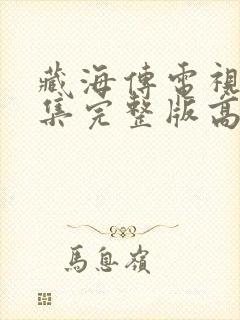 藏海傳電視
集完整版高
馬息嶺